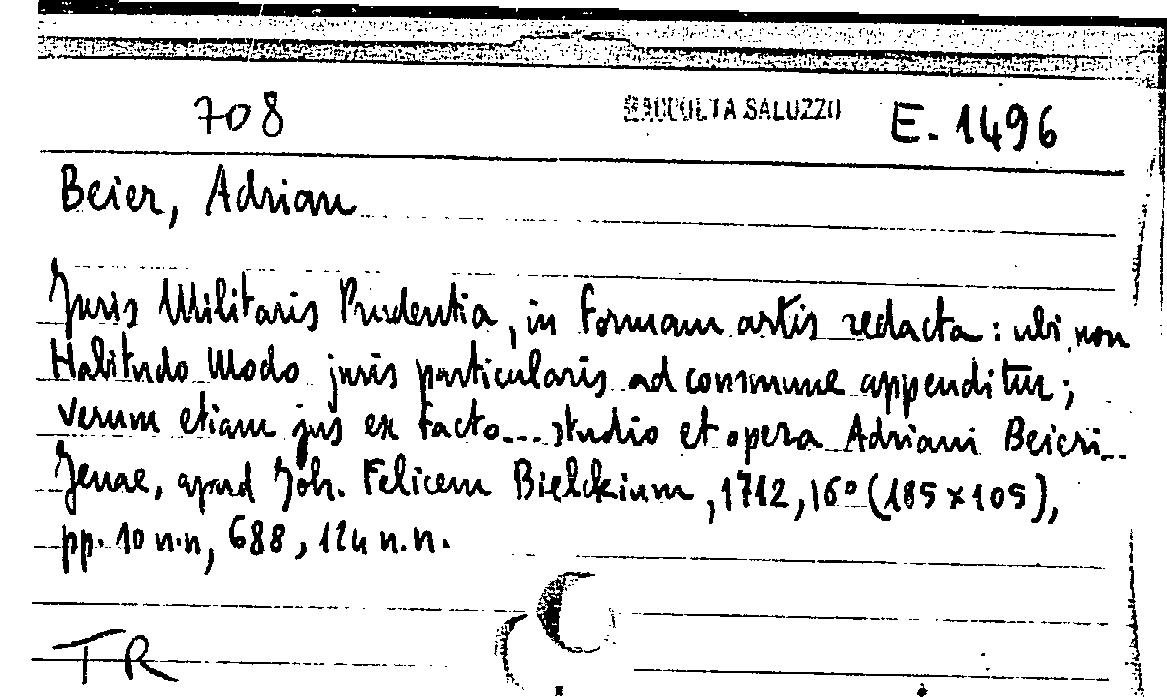 708 RACCOLTA SALUZZO E. 1496
Beier, Adrian
Juris Militaris Prudentia, in formam artis redacta: ubi non
Habitudo Modo juris particularis ad commune appenditur;
verum etiam jus ex facto... studio et opera Adriani Beieri..
Jenae, apud Joh. Felicem Bielckium, 1712, 16° (185 x 105),
pp. 10 n.n, 688, 124 n.n.
TR